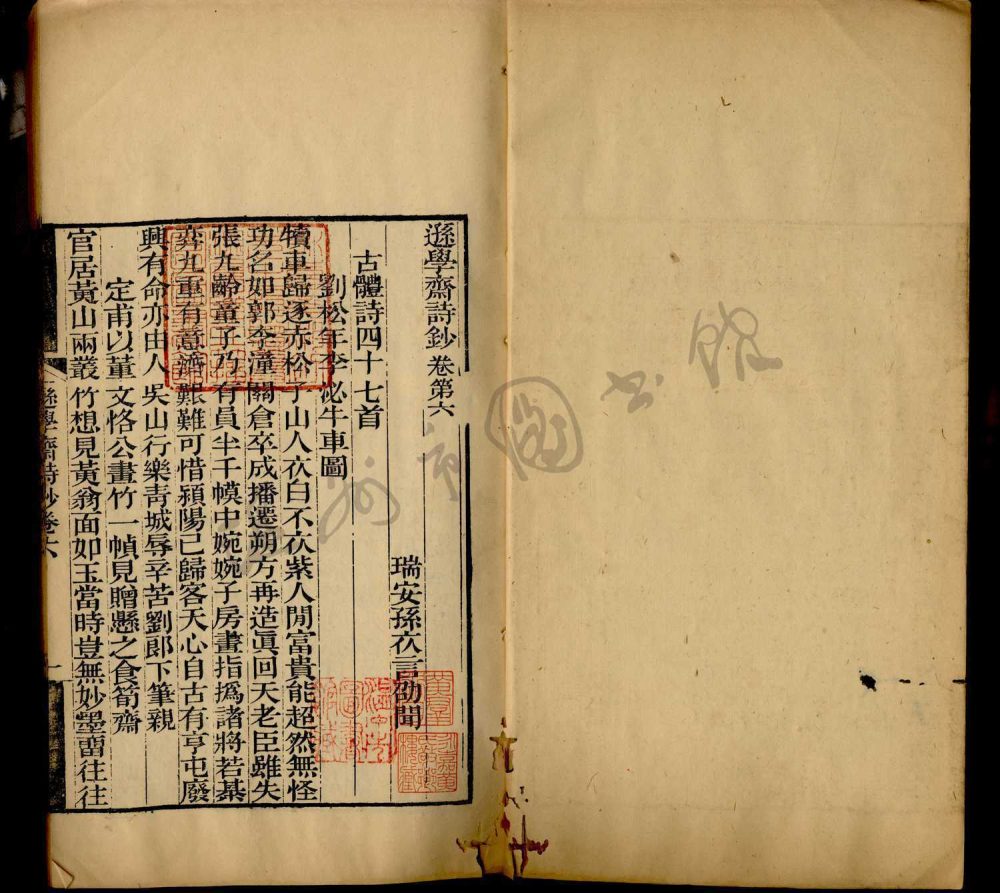 遜學齋詩鈔卷第六
瑞安孫衣言劭聞
古體詩四十七首
劉松年李泌牛車圖
犢車歸逐赤松子山人衣白不衣紫人閒富貴能超然無怪
功名如郭李潼關倉卒成播遷朔方再造眞回天老臣雖失
張九齡童子乃有員半千幙中婉婉子房畫指撝諸將若棊
弈九重有意濟艱難可惜潁陽已歸客天心自古有亨屯廢
興有命亦由人吳山行樂靑城辱辛苦劉郎下筆親
定甫以董文恪公畫竹一幀見贈懸之食筍齋
官居黃山兩叢竹想見黃翁面如玉當時豈無妙墨畱往往
遜學齋詩鈔卷六
一
州市圖书館